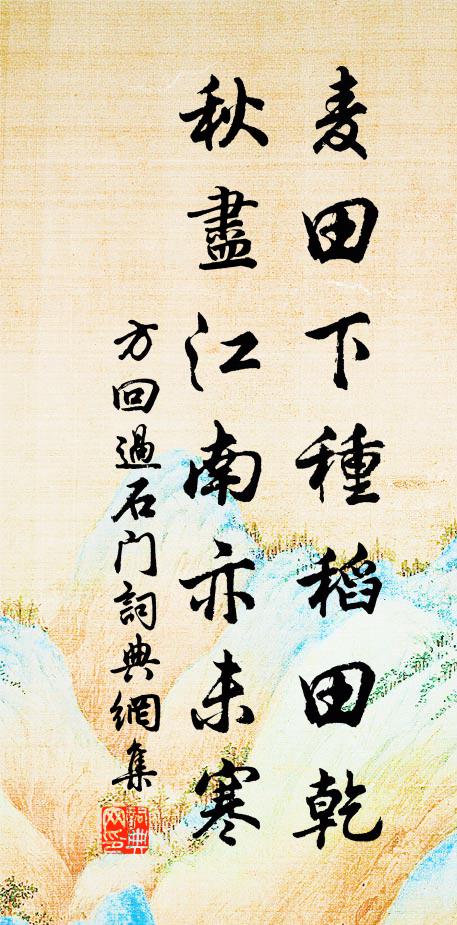 麦田下種稻田乾
秋盡江南亦未寒
方回過石门詞典網集
詞典
网印